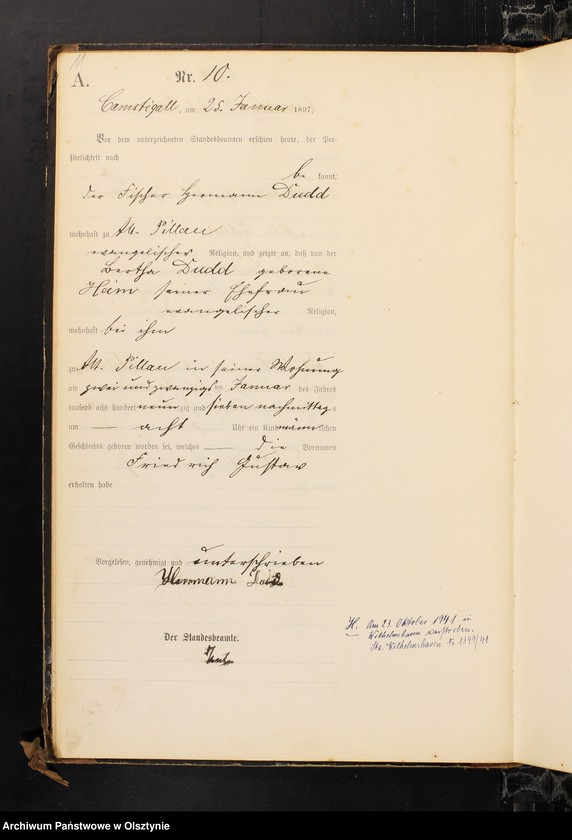 A.
Nr. 10.
Camstigall, am 25. Januar 1897.
Vor dem unterzeichneten Standesbeamten erschien heute, der Per-
sönlichkeit nach
be kannt,
der Fischer Hermann Dudd
wohnhaft zu Alt. Pillau
evangelischer Religion, und zeigte an, daß von der
Bertha Dudd geborene
Heim seiner Ehefrau
evangelischer Religion,
wohnhaft bei ihm
zu Alt. Pillau in seiner Wohnung
am zwei und zwanzigsten Januar des Jahres
tausend acht hundert neun zig und sieben nachmittags
um acht Uhr ein Kind männlichen
Geschlechts geboren worden sei, welches die Vornamen
Friedrich Gustav
erhalten habe
Vorgelesen, genehmigt und unterschrieben
Hermann
Der Standesbeamte.
H. Am 23. Oktober 1941 in
Wilhelmshaven verstorben.
Sta. Wilhelmshaven Nr. 1349/41.
Archiwum Państwowe w Olsztynie